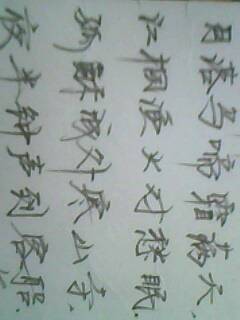 月落乌啼霜满天.
江枫渔火对愁眠.
孤酥城外寒山寺.
夜半钟声到客船